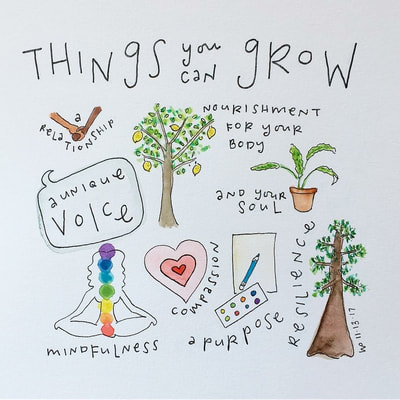 THINGS you can GROW
a
RELATIONSHIP
NOURISHMENT
FOR YOUR
BODY
AND YOUR
SOUL
a unique
VOICE
MINDFULNESS
COMPASSION
a PURPOSE
RESILIENCE